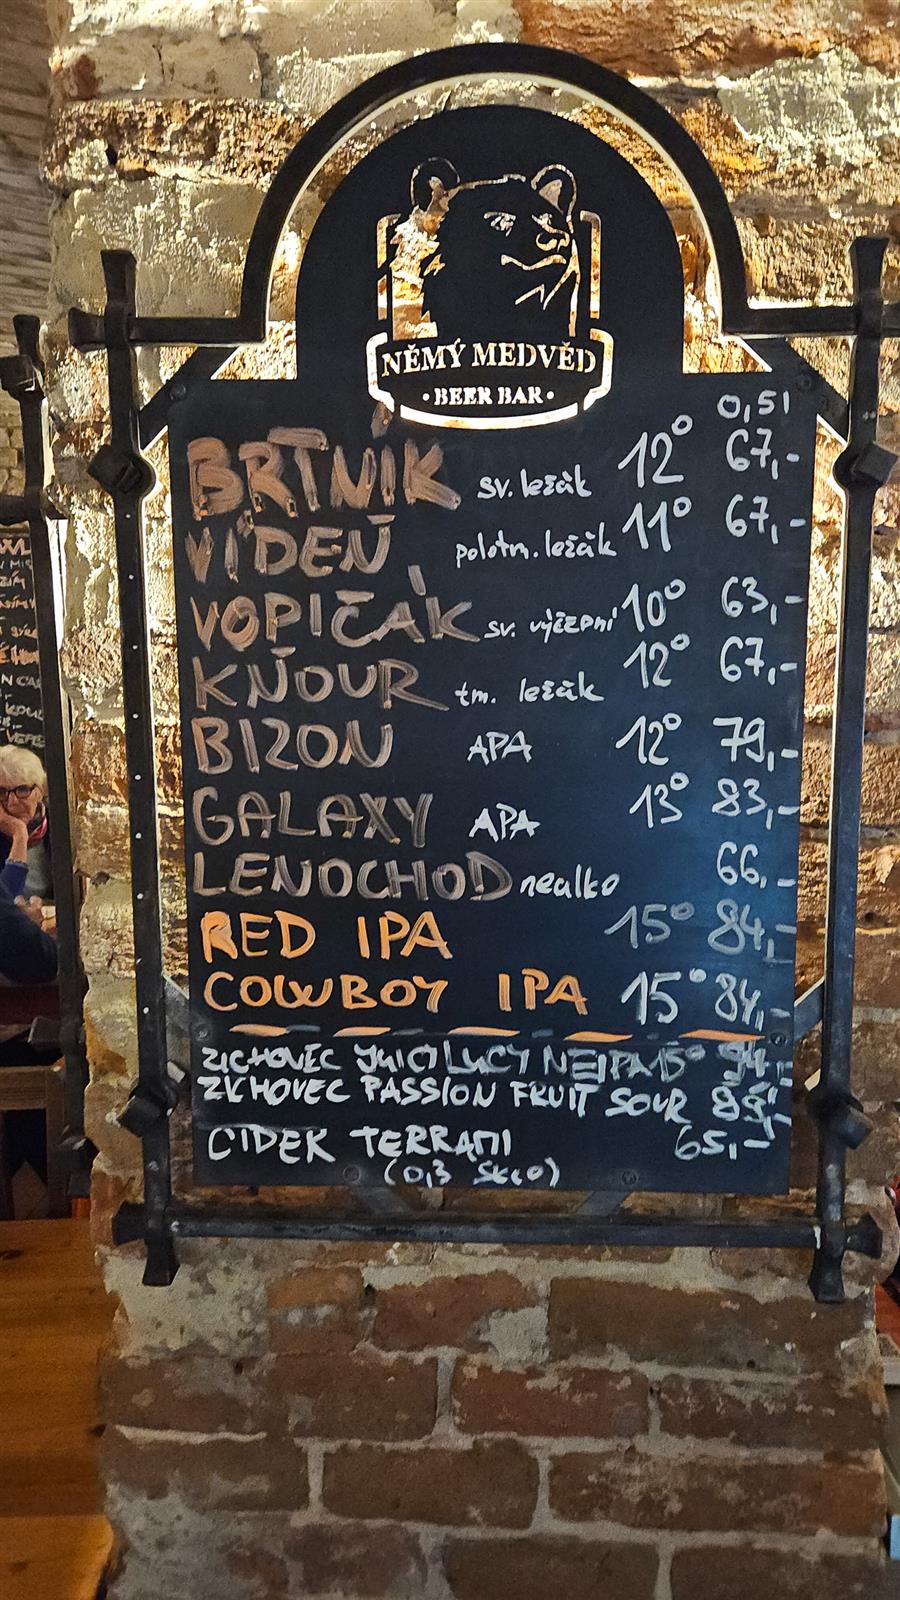 NĚMÝ MEDVĚD
· BEER BAR ·
0,5l
BRTNÍK sv. ležák 12° 67,-
VÍDEŇ polotm. ležák 11° 67,-
VOPIČÁK sv. výčepní 10° 63,-
KŇOUR tm. ležák 12° 67,-
BIZON APA 12° 79,-
GALAXY APA 13° 83,-
LENOCHOD nealko 66,-
RED IPA 15° 84,-
COWBOY IPA 15° 84,-
ZICHOVEC JUICY LUCY NEIPA 15° 94,-
ZICHOVEC PASSION FRUIT SOUR 89,-
CIDER 65,-
(0,3 sklo)